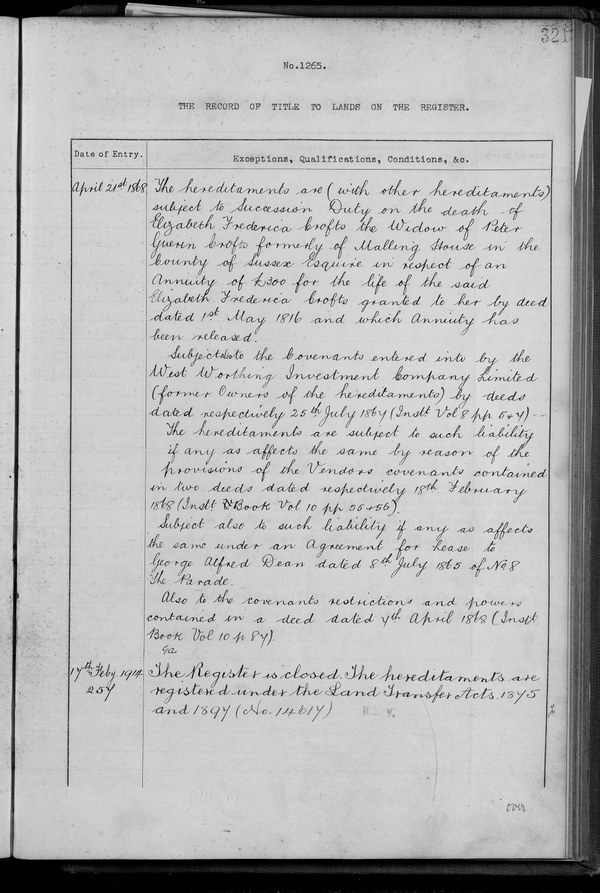 321
No.1265.
THE RECORD OF TITLE TO LANDS ON THE REGISTER.
Date of Entry.
Exceptions, Qualifications, Conditions, &c.
April 21st 1868 The hereditaments are (with other hereditaments)
subject to Succession Duty on the death of
Elizabeth Frederica Crofts the Widow of Peter
Guerin Crofts formerly of Malling House in the
County of Sussex Esquire in respect of an
Annuity of £300 for the life of the said
Elizabeth Frederica Crofts granted to her by deed
dated 1st May 1816 and which Annuity has
been released.
Subject also to the Covenants entered into by the
West Worthing Investment Company Limited
(former Owners of the hereditaments) by deeds
dated respectively 25th July 1867 (Instt Vol 8 pp 5+7)
The hereditaments are subject to such liability
if any as affects the same by reason of the
provisions of the Vendors covenants contained
in two deeds dated respectively 18th February
1868 (Instt Book Vol 10 pp 55+56).
Subject also to such liability if any as affects
the same under an Agreement for Lease to
George Alfred Dean dated 8th July 1865 of No 8
The Parade.
Also to the covenants restrictions and powers
contained in a deed dated 7th April 1868 (Instt
Book Vol 10 p 87)
Ga
17th Feby. 1914 The Register is closed. The hereditaments are
257 registered under the Land Transfer Acts. 1875
and 1897 (No. 14617)